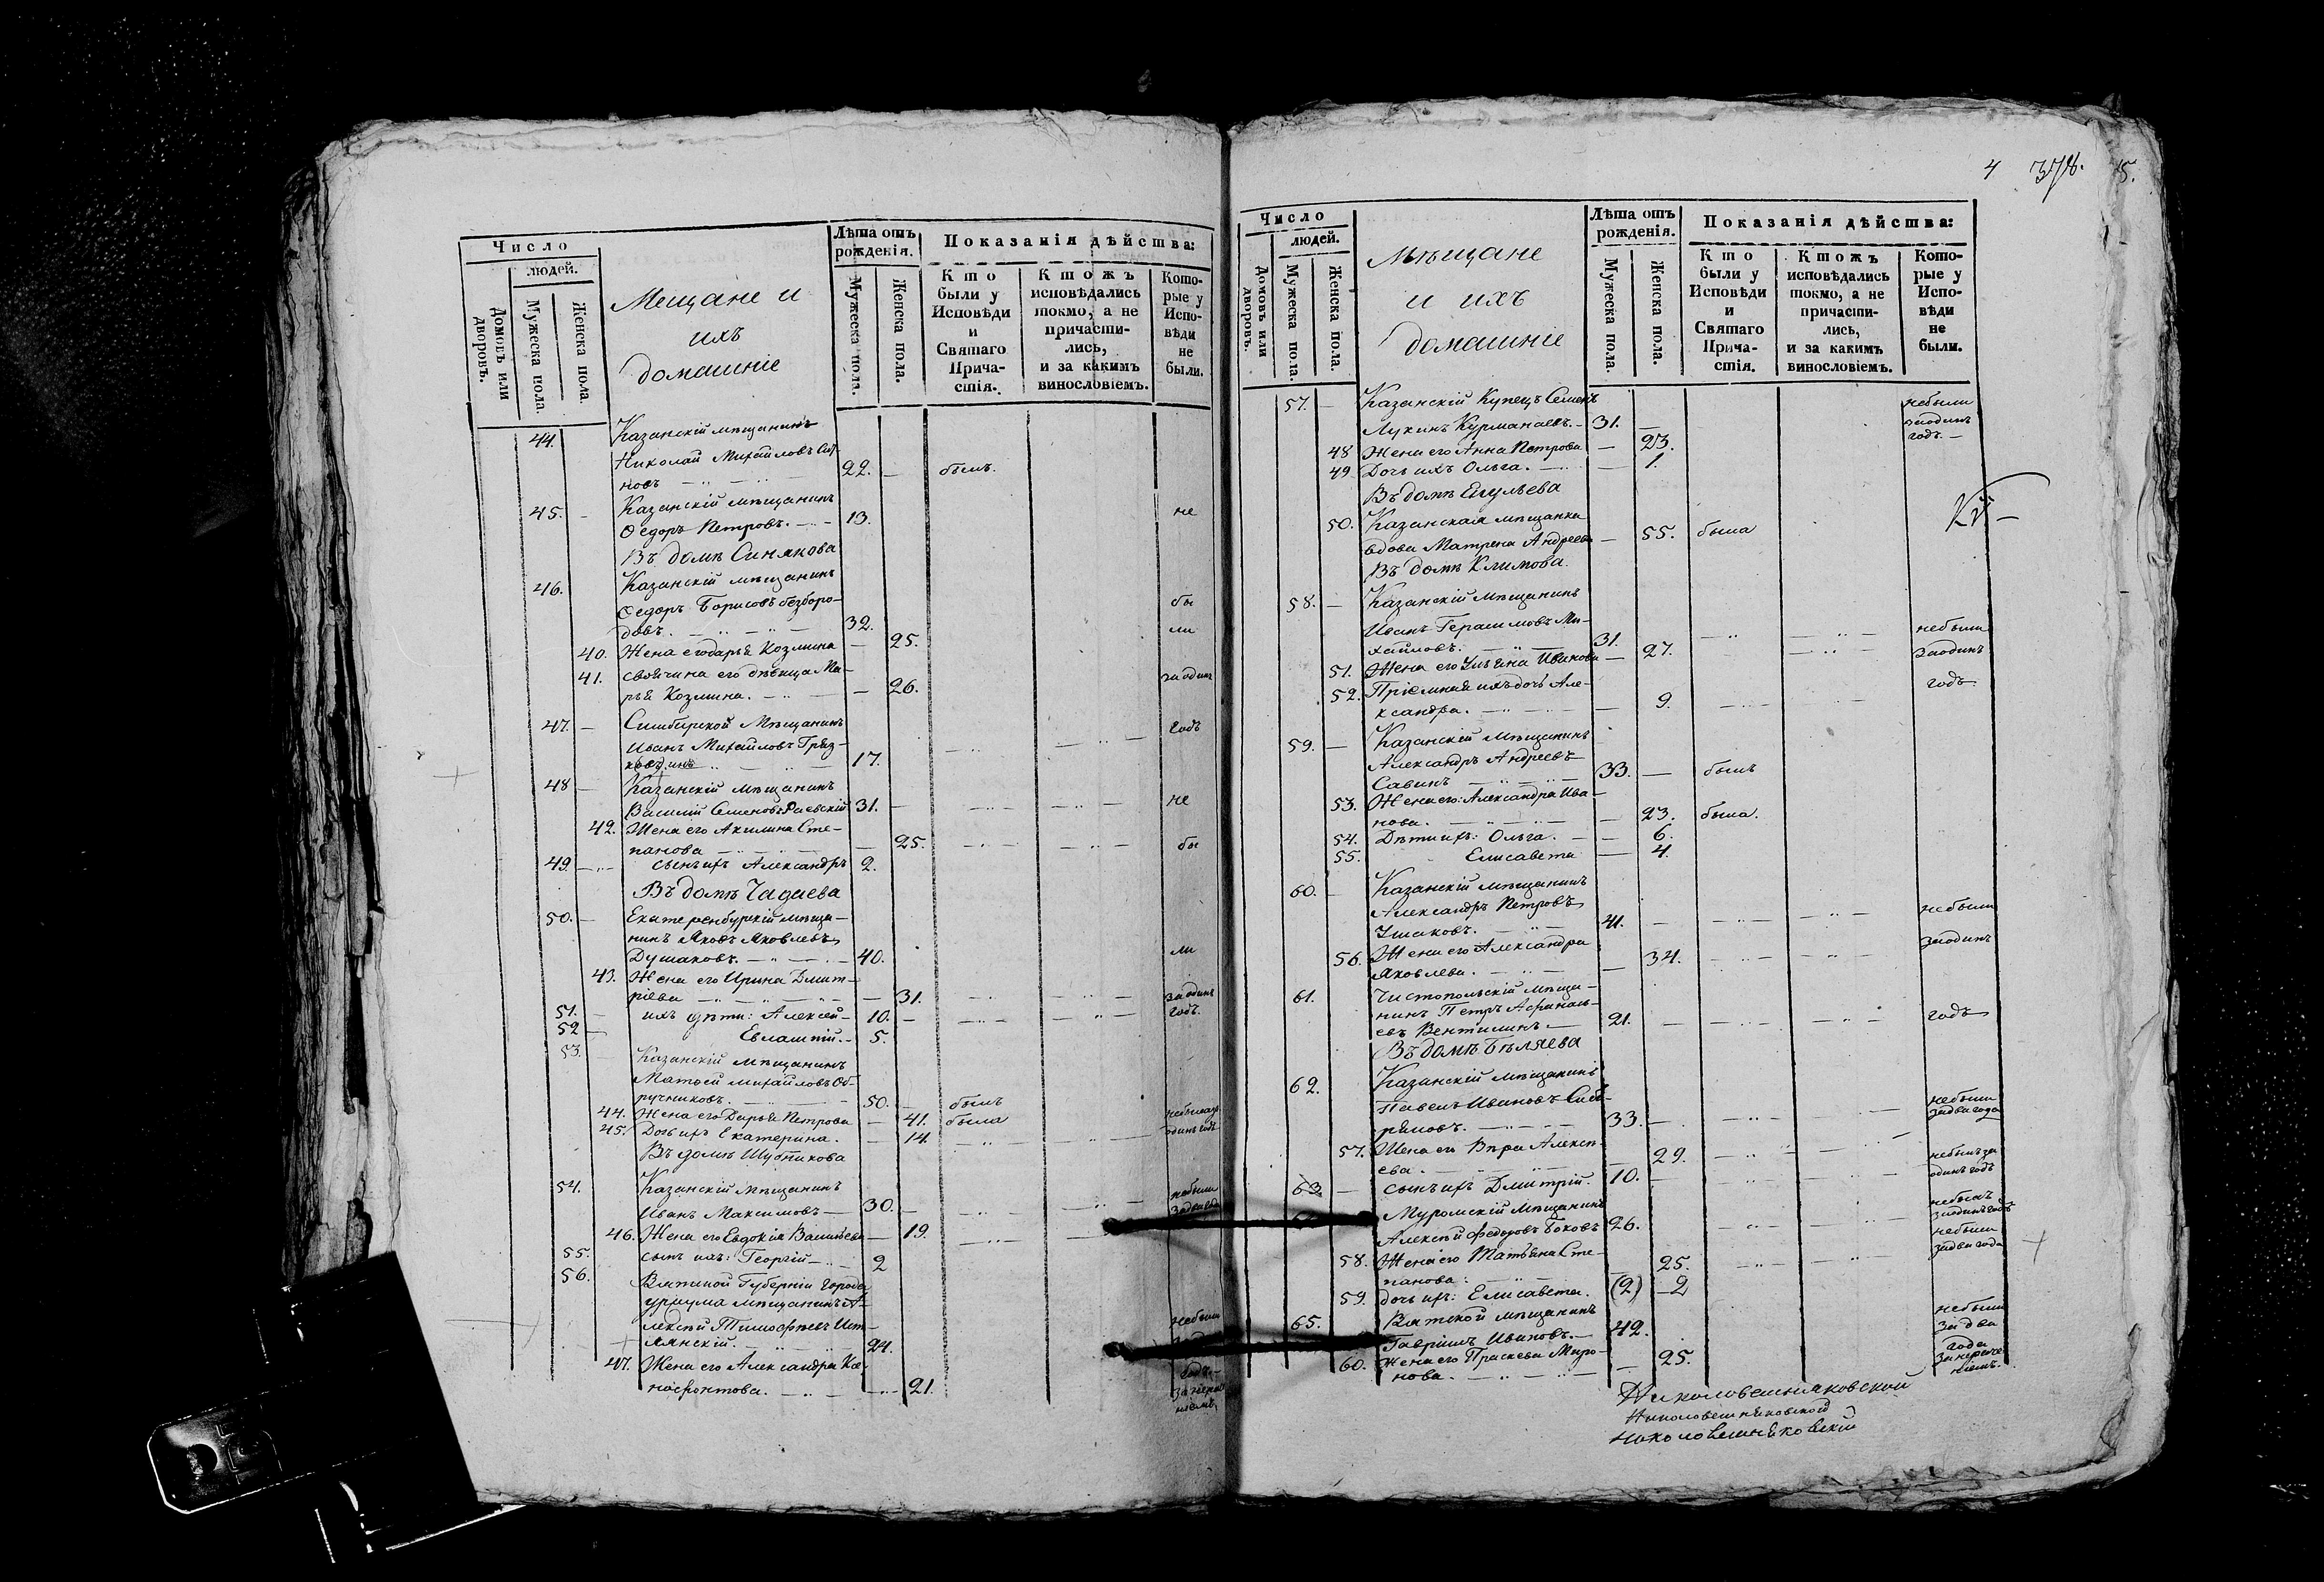 Число
людей.
Домовъ или дворовъ.
Мужеска пола.
Женска пола.
Мещане и
ихъ
домашніе
Лѣта отъ
рожденія.
Мужеска пола.
Женска пола.
Показанія дѣйства:
Кто были у Исповѣди и Святаго Причастія.
Ктожъ исповѣдались токмо, а не причастились, и за какимъ винословіемъ.
Которые у Исповѣди не были.
44. Казанскій мѣщанинъ
Николай Михайловъ
новъ 22. былъ.
45. Казанскій мѣщанинъ
Ѳедоръ Петровъ. 13. не
Въ домѣ Синякова
46. Казанскій мѣщанинъ
Ѳедоръ Борисовъ безборо- бы
довъ. 32. ли
40. Жена его дарья Козмина 25.
41. свойчина его дѣвица Ма-
рья Козмина. 26. за одинъ
47. Симбирской Мѣщанинъ годъ
Иванъ Михайловъ Гряз-
17.
48 Казанскій мѣщанинъ
Василій Семеновъ Раевскій 31. не
42. Жена его Акилина Сте-
панова 25. бы
49. сынъ ихъ Александръ 2.
Въ домѣ Чадаева
50. Екатеренбурскій мѣща-
нинъ Яковъ Яковлевъ
Душаковъ. 40. ли
43. Жена его Ирина Дмит-
ріева 31. за одинъ
51. ихъ дѣти: Алексѣй 10. годъ.
52 Евлампій. 5.
53. Казанскій мѣщанинъ
Матвей михайловъ Об-
ручниковъ. 50. былъ
44. Жена его Дарья Петрова 41. была
45. Дочь ихъ Екатерина. 14 небыла за
одинъ годъ
Въ домѣ Шубникова
54. Казанскій Мѣщанинъ небыли
Иванъ Максимовъ 30. за два года
46. Жена его Евдокія Васильева 19.
55. сынъ ихъ: Георгій 2
56. Вятской Губерніи города
уржума мѣщанинъ А-
лексѣй Тимофѣевъ Ист- небыли
лянскій. 24.
47. Жена его Александра Ксе-
нофонтова. 21.
4 378. 5.
Число
людей.
Домовъ или дворовъ.
Мужеска пола.
Женска пола.
Мѣщане
и ихъ
домашніе
Лѣта отъ
рожденія.
Мужеска пола.
Женска пола.
Показанія дѣйства:
Кто были у Исповѣди и Святаго Причастія.
Ктожъ исповѣдались токмо, а не причастились, и за какимъ винословіемъ.
Которые у Исповѣди не были.
57. Казанскій Купецъ Семенъ небыли
Лукинъ Курманаевъ. 31. заодинъ
48 Жена его Анна Петрова 23. годъ.
49 Дочь ихъ Ольга. 1.
Въ домѣ Егульева
50. Казанская мѣщанка
вдова Матрена Андреева 55. была
Въ домѣ Климова.
58. Казанскій Мѣщанинъ
Иванъ Герасимовъ Ми-
хайловъ. 31. небыли
51. Жена его Ульяна Иванова 27. заодинъ
52. Пріемная ихъ дочь Але- годъ
ксандра. 9.
59. Казанскій Мѣщанинъ
Александръ Андреевъ
Савинъ 33. былъ
53. Жена его: Александра Ива-
нова. 23. была.
54. Дѣти ихъ: Ольга. 6.
55. Елисавета 4.
60. Казанскій мѣщанинъ
Александръ Петровъ небыли
Ушаковъ. 41.
56. Жена его Александра заодинъ
Яковлева. 34.
61. Чистопольскій мѣща-
нинъ Петръ Афанась- годъ
евъ Вентилинъ 21.
Въ домѣ Бѣляева
62. Казанскій мѣщанинъ
Павелъ Ивановъ Сиб- небыли
ряковъ. 33. за два года
57. Жена его Вѣра Алексѣ-
ева. 29. небылъ за
63. сынъ ихъ Дмитрій. 10. одинъ годъ
Муромскій Мѣщанинъ небылъ
Алексѣй федоровъ Боковъ 26. заодинъ годъ
58. Жена его Татьяна Сте- небыли
панова: 25. за два года
59. дочь ихъ: Елисавета. (2) 2
65. Вятской мѣщанинъ небыли
Гавріилъ Ивановъ. 42. за два
60. Жена его Праскева Миро- года
нова. 25. за нераче-
ніемъ.
Николовешняковской
Николовешняковской
Николовешняковскій